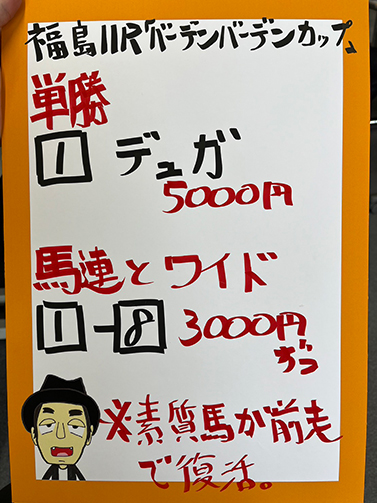 福島11R「バーデンバーデンカップ」
単勝
1 デュガ
5000円
馬連とワイド
1-8 3000円
ずつ
※素質馬が前走
で復活。